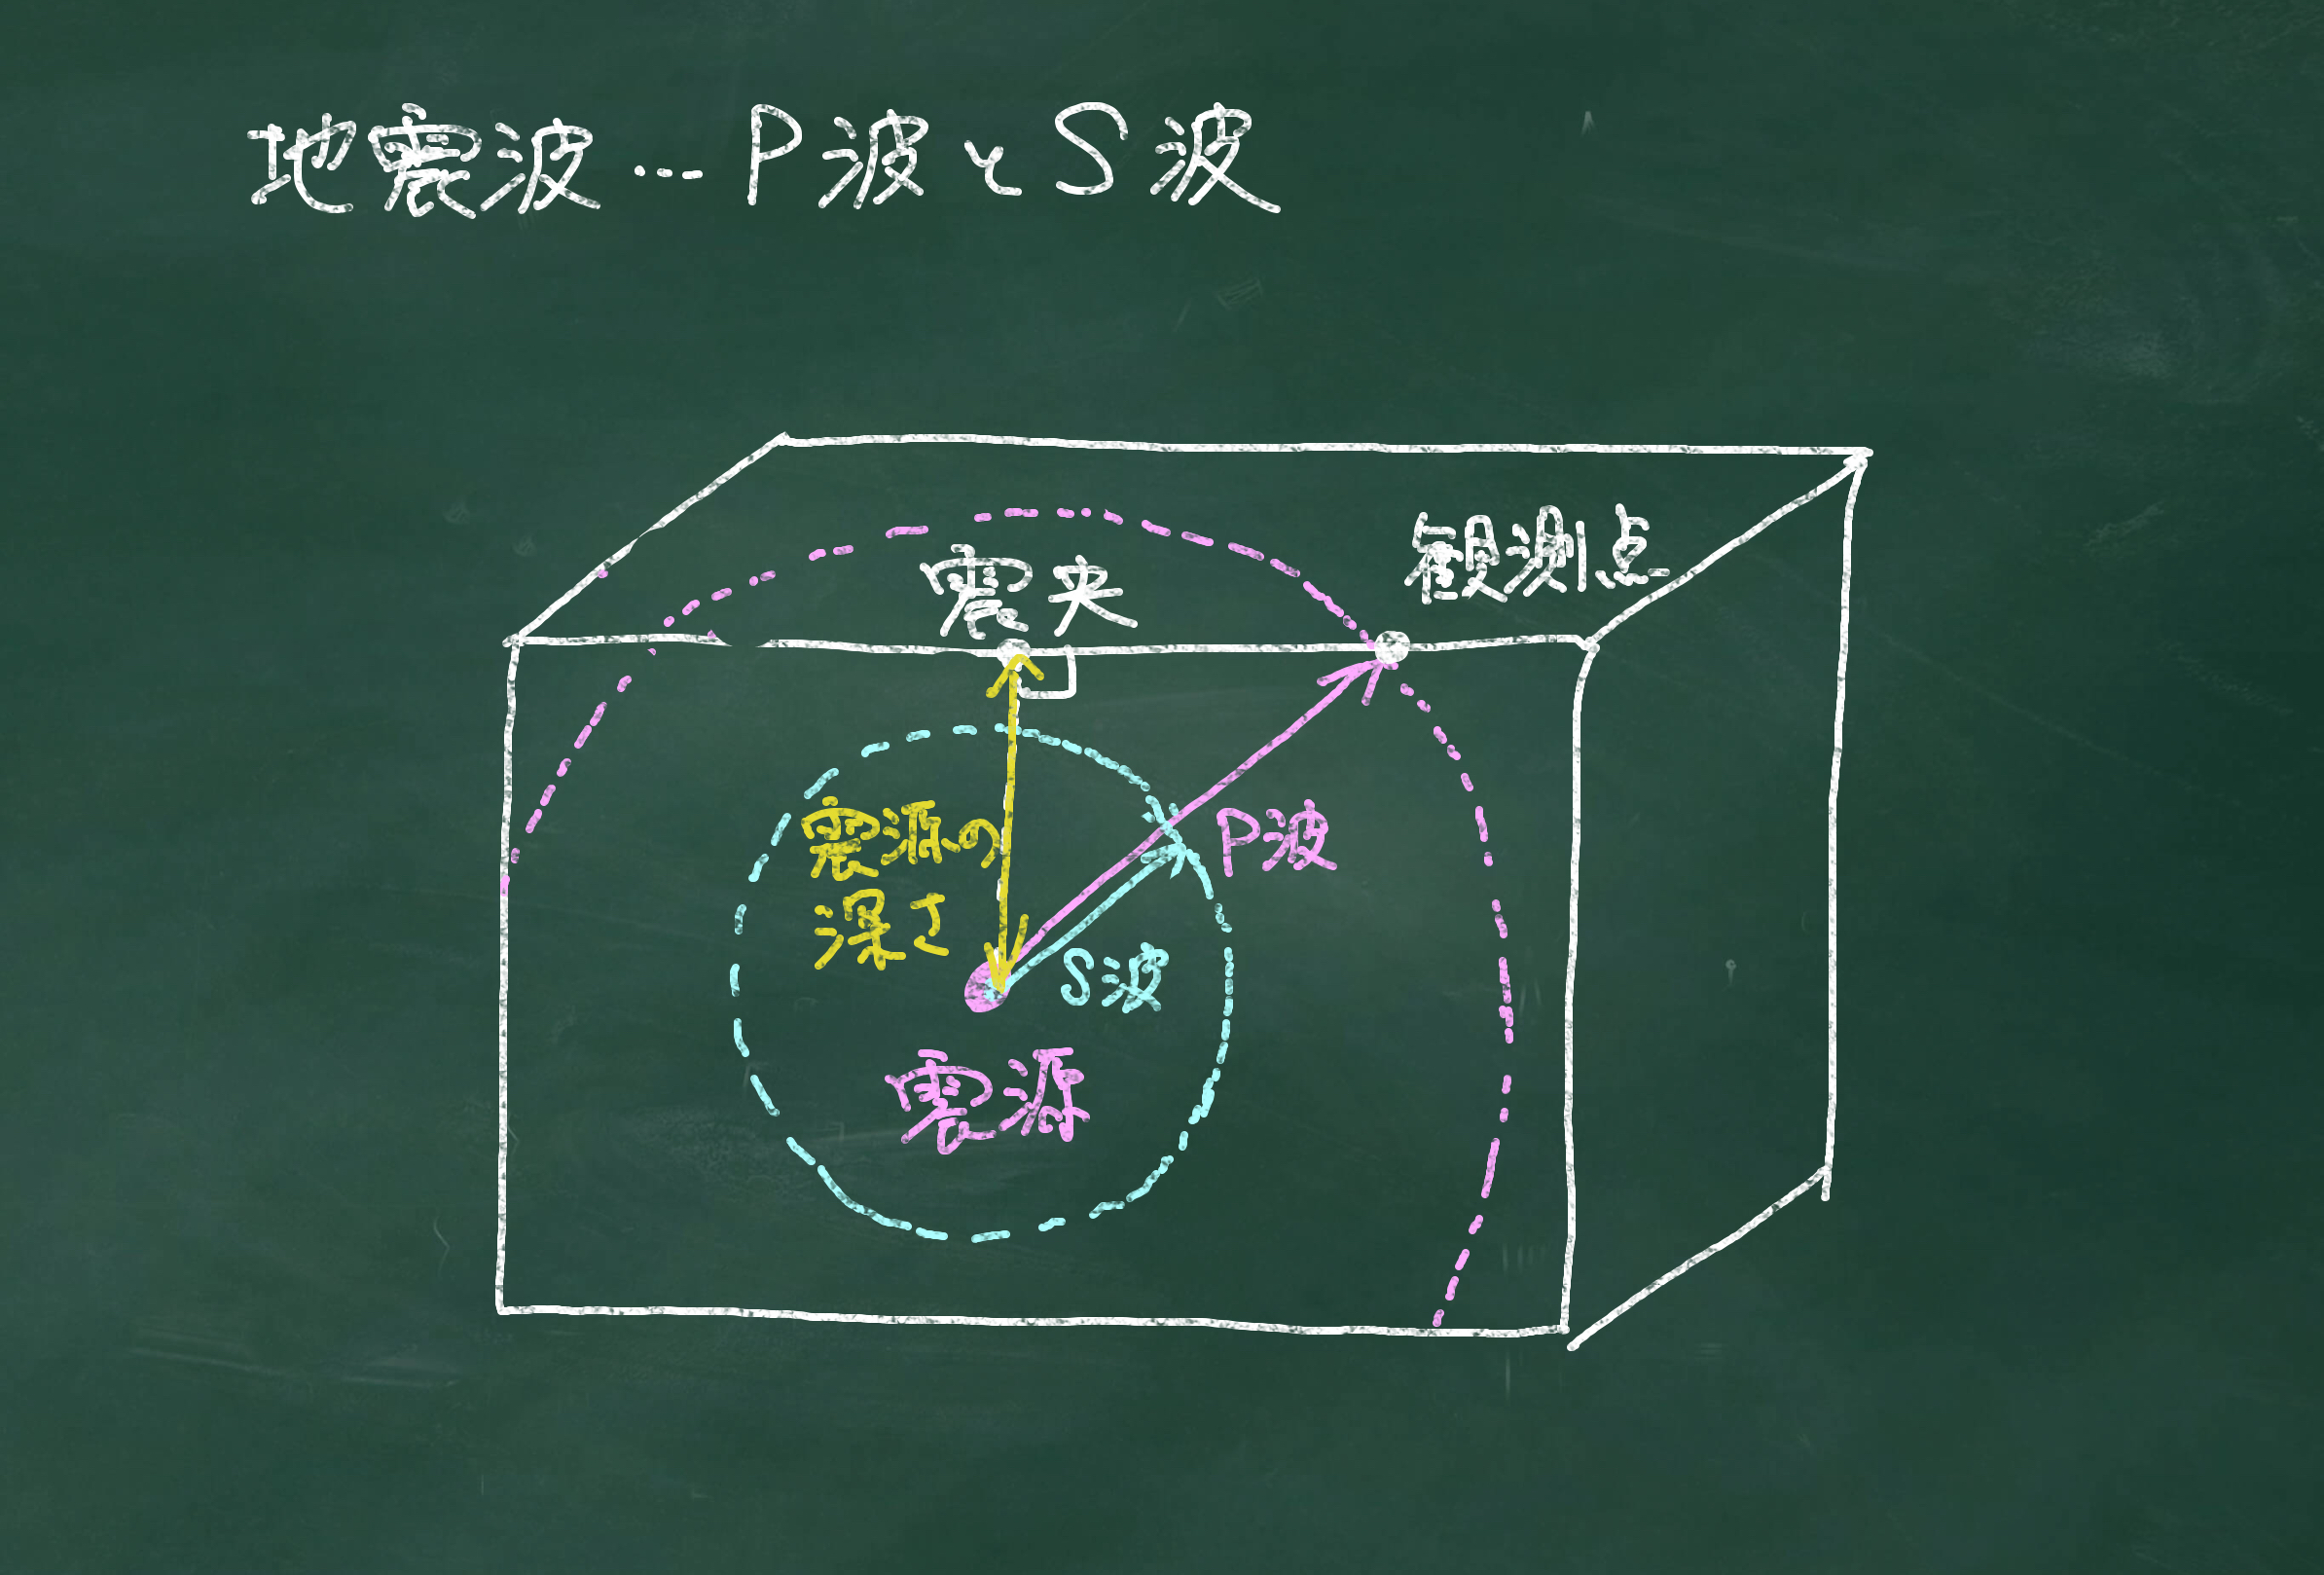 地震波…P波とS波
観測点
震央
震源の
深さ
P波
S波
震源